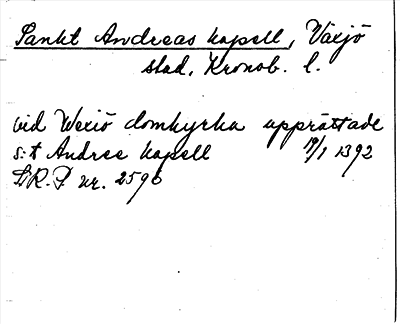 Sankt Andreas kapell, Växjö
stad, Kronob. l.
vid Wexiö domkyrka upprättade
s:t Andree kapell 19/1 1392
SR.P nr. 2596